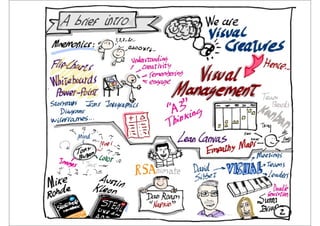 A brief intro
We are
Visual
Creatures
Mnemonics:
Flip-Charts
Whiteboards
Power-Point
Understanding
creativity
remembering
engage
Hence...
Visual
Management
"A3"
Thinking
Storymaps Icons Infographics
Diagrams
Wireframes...
Team
Boards
Kanban
Lean Canvas
Empathy Maps
Mind
Map!
Tony
Buzan
Color
Images
RSAnimate
David
Sibbet
VISUAL
Meetings
Teams
Leaders
Mike
Rohde
Austin
Kleon
STEAL
LIKE AN
Dan Roam
"Napkin"
Sunni
Brown
2